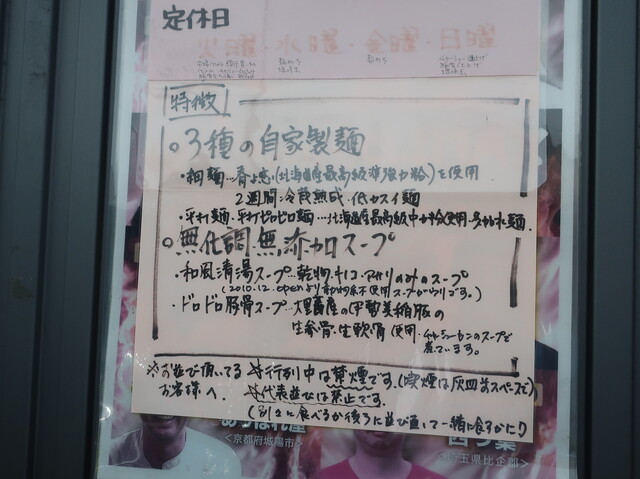 定休日
火曜・水曜・金曜・日曜
特徴
○3種の自家製麺
・細麺…春よ恋(北海道産最高級準強力粉)を使用
2週間冷蔵熟成・低カスイ麺
・平打麺・平打ピロピロ麺…北海道産最高級中力粉使用・多加水麺.
○無化調・無添加スープ
・和風清湯スープ…乾物・キノコ・アサリのみのスープ
(2010.12.openより動物系不使用スープがウリです。)
・ドロドロ豚骨スープ…埋畜産の伊勢美稲豚の
生拳骨・生軟骨使用・チャーシューもこのスープで
煮ています。
※お並び頂いてる
お客様へ
☆行列中は禁煙です。(喫煙は灰皿前スペースで)
☆代表並びは禁止です。
(別々に食べるか後ろに並び直して一緒に食すかに)
<京都府城陽市>
<埼玉県比企郡>